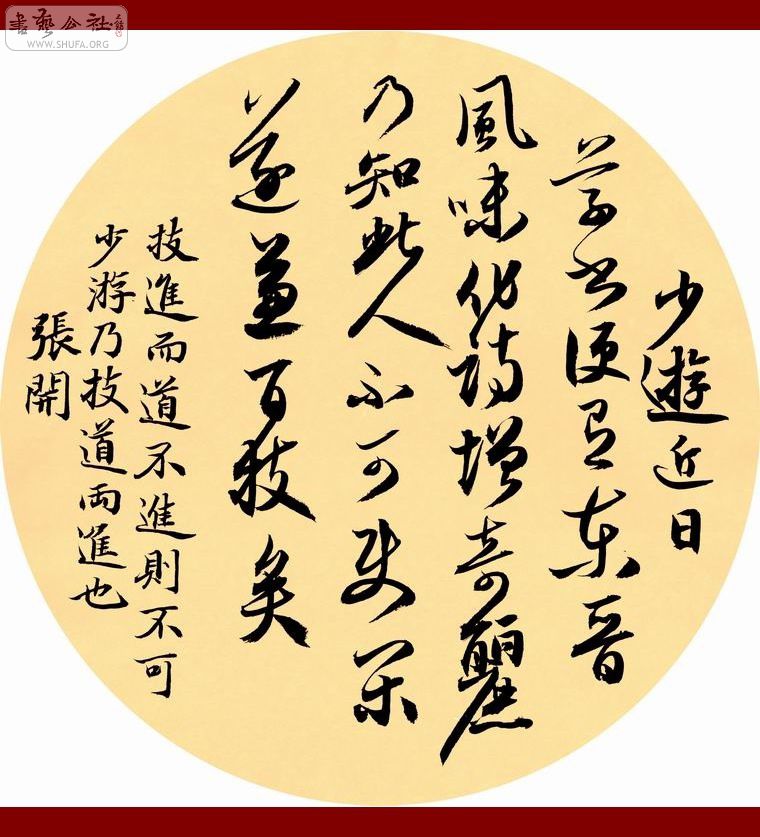 書藝公社
WWW.SHUFA.ORG
少遊近日
草書便有東晉
風味作詩增奇麗
乃知此人不可使閑
遂兼百技矣
技進而道不進則不可
少游乃技道兩進也
張開